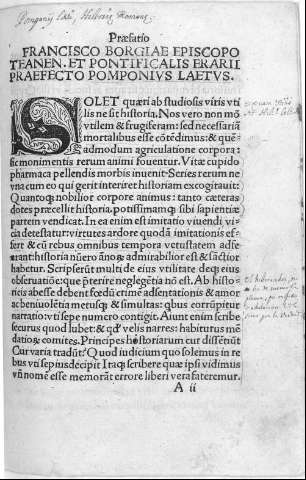 Præfatio
FRANCISCO BORGIAE EPISCOPO
TEANEN. ET PONTIFICALIS ERARII
PRAEFECTO POMPONIVS LAETVS.
SOLET quæri ab studiosis viris vti
lis ne sit historia. Nos vero non mõ
vtilem & frugiferam: sed necessariã
mortalibus esse cõtẽdimus: & quẽ
admodum agriculatione corpora: 
sic monimentis rerum animi fouentur. Vitæ cupido
pharmaca pellendis morbis inuenit. Series rerum ne
vna cum eo qui gerit interiret historiam excogitauit:
Quantoq; nobilior corpore animus: tanto cæteras
dotes præcellit historia. potissimamq; sibi sapientiæ
partem vendicat. In ea enim est imitatio viuendi: vi
cia detestatur: virtutes ardore quodã imitationis ef-
fert & cũ rebus omnibus tempora vetustatem adfe
rant: historia nũero ãnoꝝ & admirabilior est & sãctior
habetur. Scripserũt multi de eius vtilitate deq; eius
obseruatiõe: que pterire neglegẽtia nõ est. Ab histo
ricis abesse debent fœdũ crimẽ adsentationis & amor
ac benuolẽtia metusq; & simultas: qbus corrũpitur
narratio: vti sepe numero contigit. Aiunt enim scribe
securus quod lubet: & qd velis narres: habiturus mẽ
datioꝝ comites. Principes historiarum cur dissẽtiũt
Cur varia tradũt? Quod iudicium quo solemus in re
bus vti sepius decipit. Itaq; scribere quæ ipsi vidimus
vñ nomẽ esse memorãt errore liberi vera fateremur.
A ii